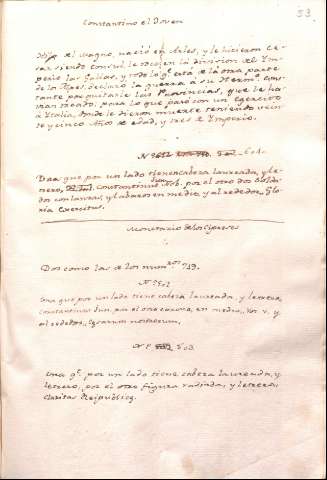 53
Constantino el Joven
Hijo de Magno, nació en Arles, y le hicieron Ce-
sar siendo Consul le tocó en la division del Ym-
perio las Galias, y todo lo q.e esta de la otra parte
de los Alpes, declaró la guerra a su Herm.o Cons-
tante por quitarle las Provincias, que le ha-
vian tocado; para lo que pasó con un Egercito
a Ytalia, donde le dieron muerte teniendo vein-
te y cinco Años de edad, y tres de Ymperio.
N. 601.
Dos que por un lado tienen cabeza laureada, y le-
trero, Constantinus Jun. Nob. por el otro dos Solda-
dos con lanzas, y labaros en medio, y al rededor, Glo-
ria Exercitus.
Monetario de los Cipreses
Dos como las de los num.ros 719.
N.o 502
Una que por un lado tiene cabeza laureada, y letrero,
Constantinus Jun. por el otro corona, en medio, Vot. V. y
al rededor,
N.o 503
Una q.e por un lado tiene cabeza laureada, y
letrero, por el otro figura radiada, y letrero,
Claritas Reipublice.